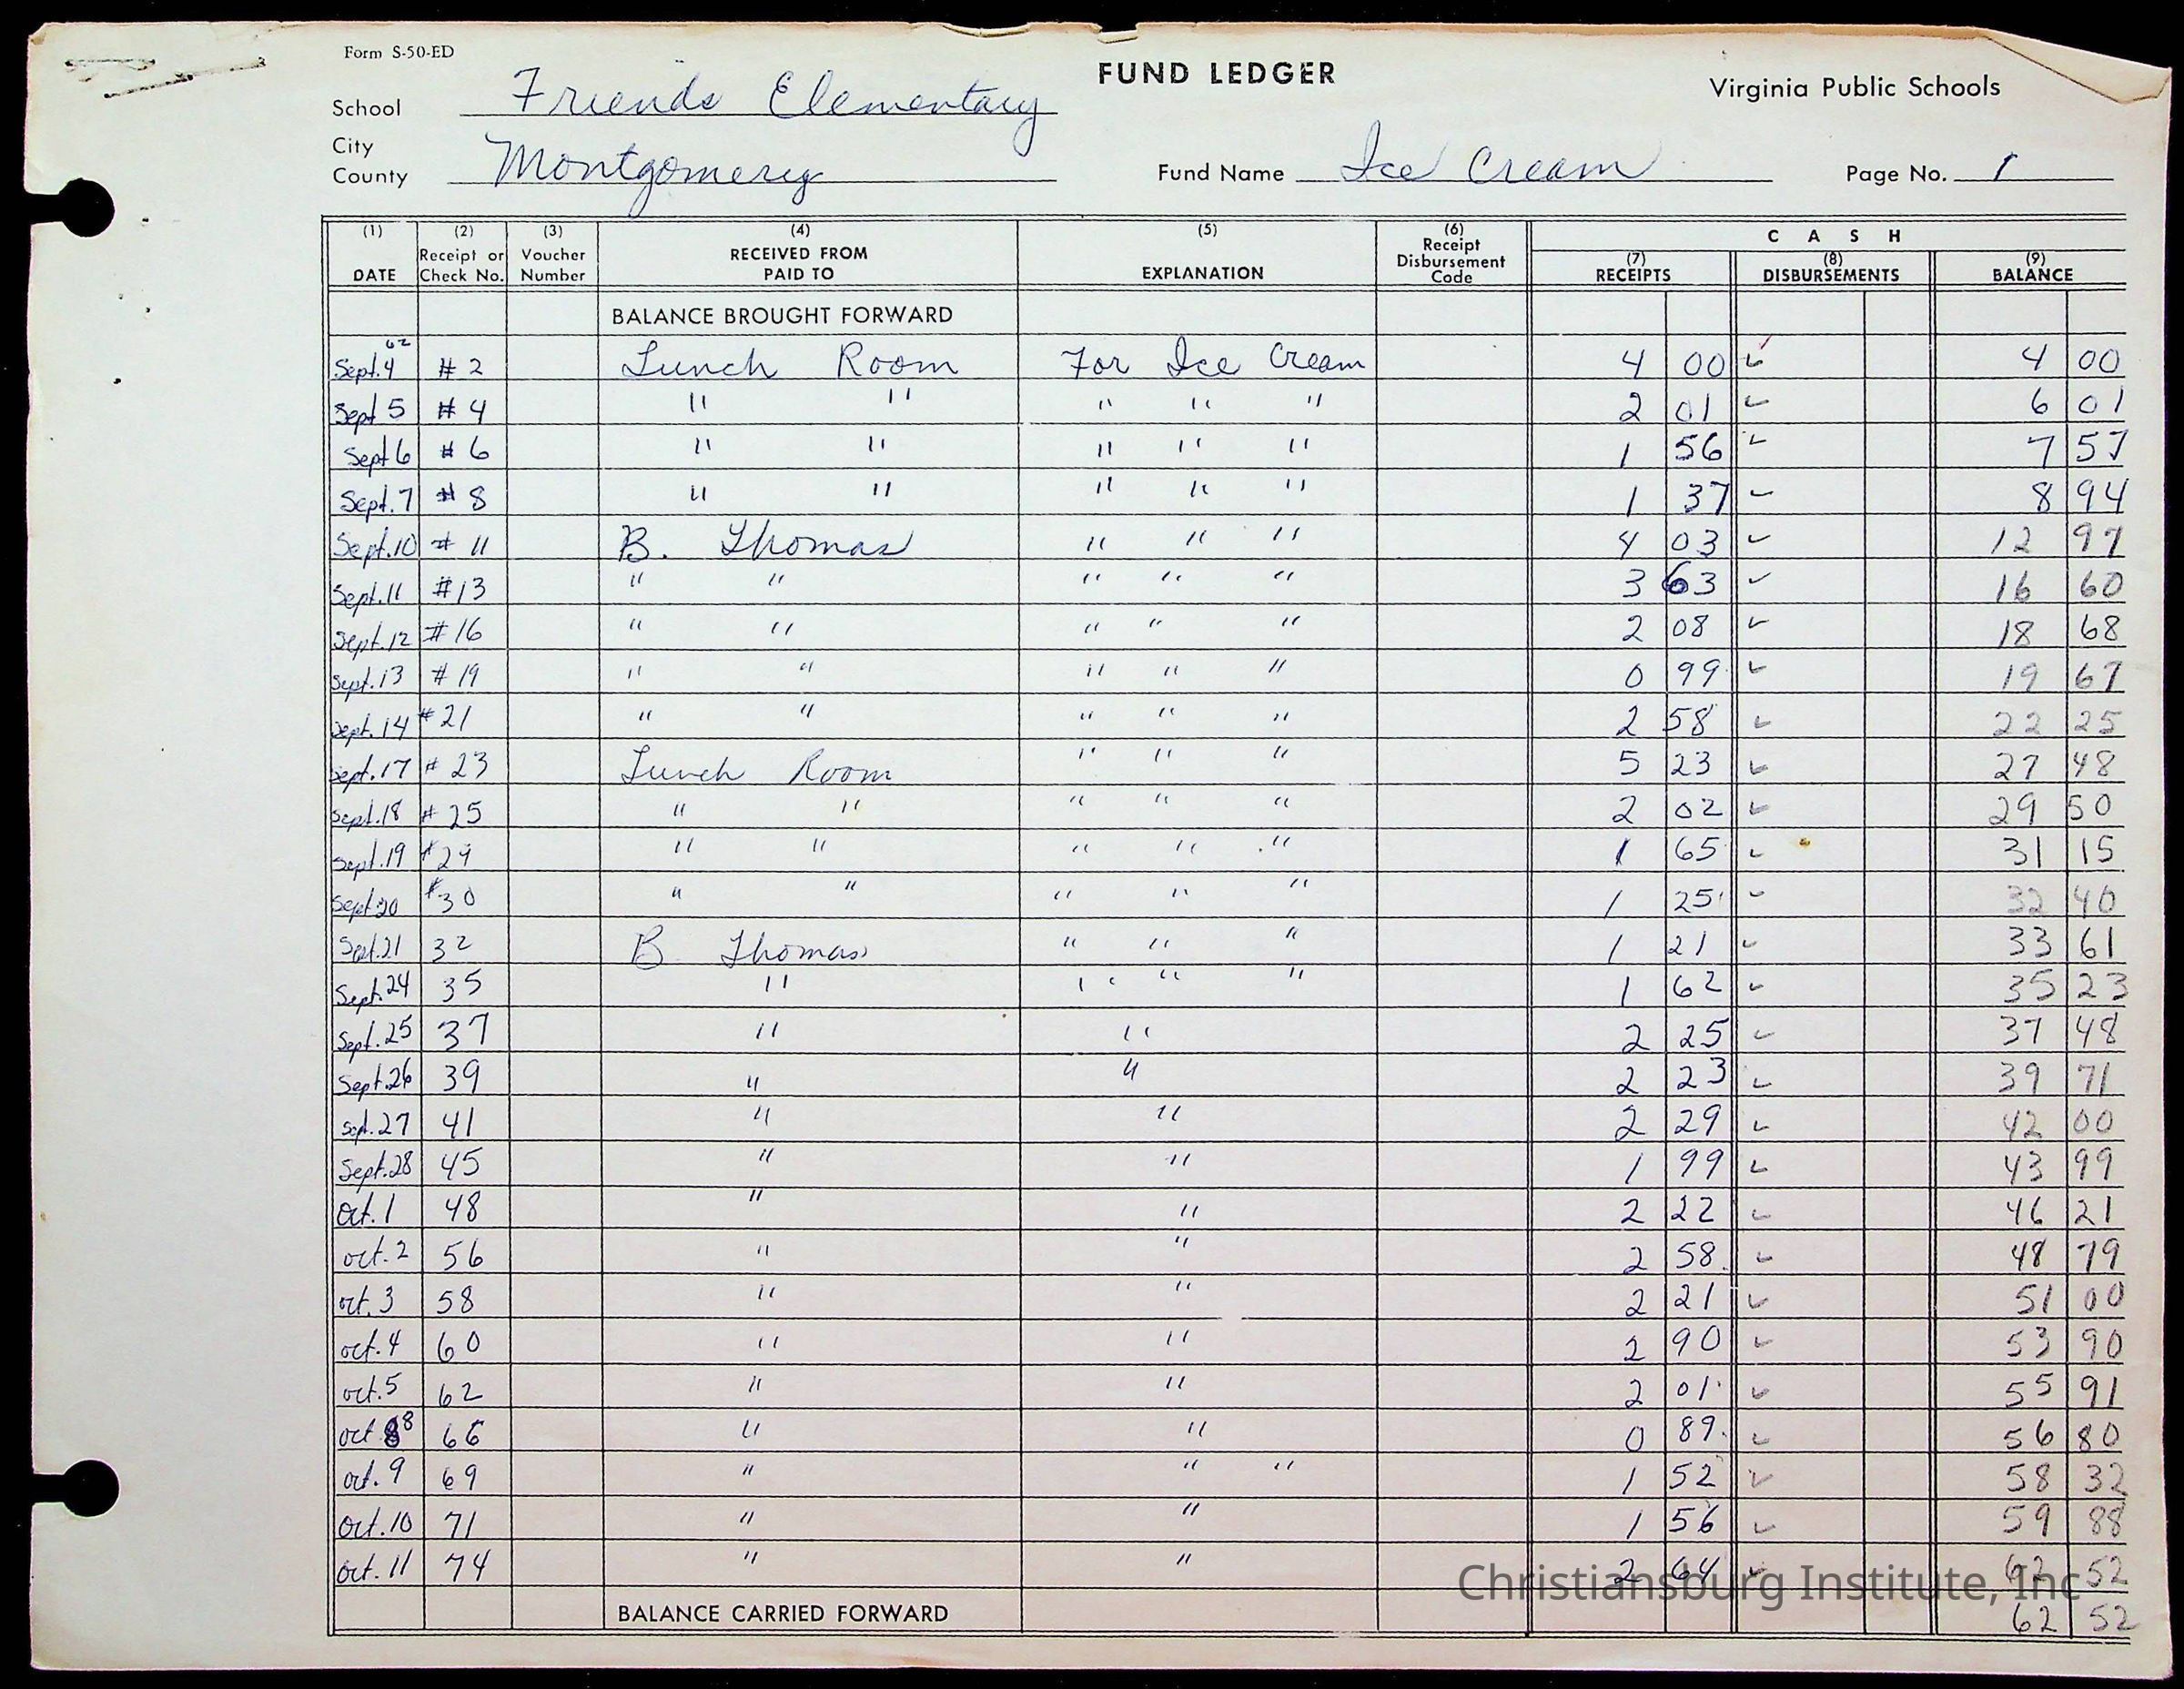 Form S-50-ED
FUND LEDGER
Virginia Public Schools
School Friends Elementary
City
County Montgomery
Fund Name Ice Cream
Page No. 1
(1) DATE (2) Receipt or Check No. (3) Voucher Number (4) RECEIVED FROM PAID TO (5) EXPLANATION (6) Receipt Disbursement Code CASH (7) RECEIPTS (8) DISBURSEMENTS (9) BALANCE
BALANCE BROUGHT FORWARD
Sept. 4 62 # 2 Lunch Room For Ice Cream 4 00 ✓ 4 00
Sept 5 # 4 " " " " " 2 01 ✓ 6 01
Sept 6 # 6 " " " " " 1 56 ✓ 7 57
Sept. 7 # 8 " " " " " 1 37 ✓ 8 94
Sept. 10 # 11 B. Thomas " " " 4 03 ✓ 12 97
Sept. 11 # 13 " " " " " 3 63 ✓ 16 60
Sept. 12 # 16 " " " " " 2 08 ✓ 18 68
Sept. 13 # 19 " " " " " 0 99 ✓ 19 67
Sept. 14 # 21 " " " " " 2 58 ✓ 22 25
Sept. 17 # 23 Lunch Room " " " 5 23 ✓ 27 48
Sept. 18 # 25 " " " " " 2 02 ✓ 29 50
Sept. 19 # 29 " " " " " 1 65 ✓ 31 15
Sept. 20 # 30 " " " " " 1 25 ✓ 32 40
Sept. 21 32 B Thomas " " " 1 21 ✓ 33 61
Sept. 24 35 " " " " 1 62 ✓ 35 23
Sept. 25 37 " " 2 25 ✓ 37 48
Sept. 26 39 " " 2 23 ✓ 39 71
Sept. 27 41 " " 2 29 ✓ 42 00
Sept. 28 45 " " 1 99 ✓ 43 99
Oct. 1 48 " " 2 22 ✓ 46 21
oct. 2 56 " " 2 58 ✓ 48 79
oct. 3 58 " " 2 21 ✓ 51 00
oct. 4 60 " " 2 90 ✓ 53 90
oct. 5 62 " " 2 01 ✓ 55 91
oct 8 66 " " 0 89 ✓ 56 80
oct. 9 69 " " " 1 52 ✓ 58 32
Oct. 10 71 " " 1 56 ✓ 59 88
Oct. 11 74 " " 2 64 ✓ 62 52
Christiansburg Institute, Inc
BALANCE CARRIED FORWARD 62 52